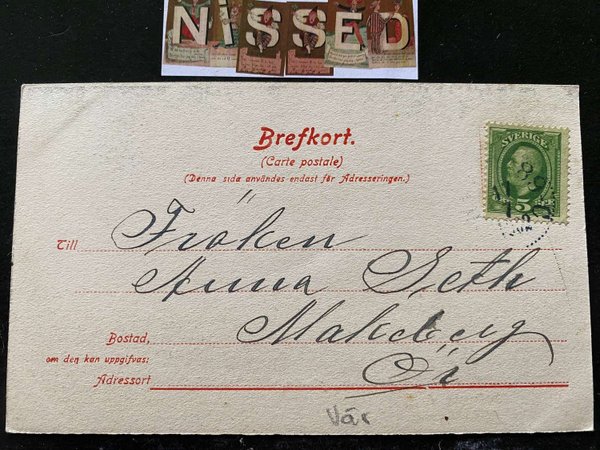 NISSED
Brefkort.
(Carte postale)
(Denna sida användes endast för Adresseringen.)
SVERIGE
5
Till Fröken
Anna Seth
Bostad,
om den kan uppgifvas:
Adressort
Vår